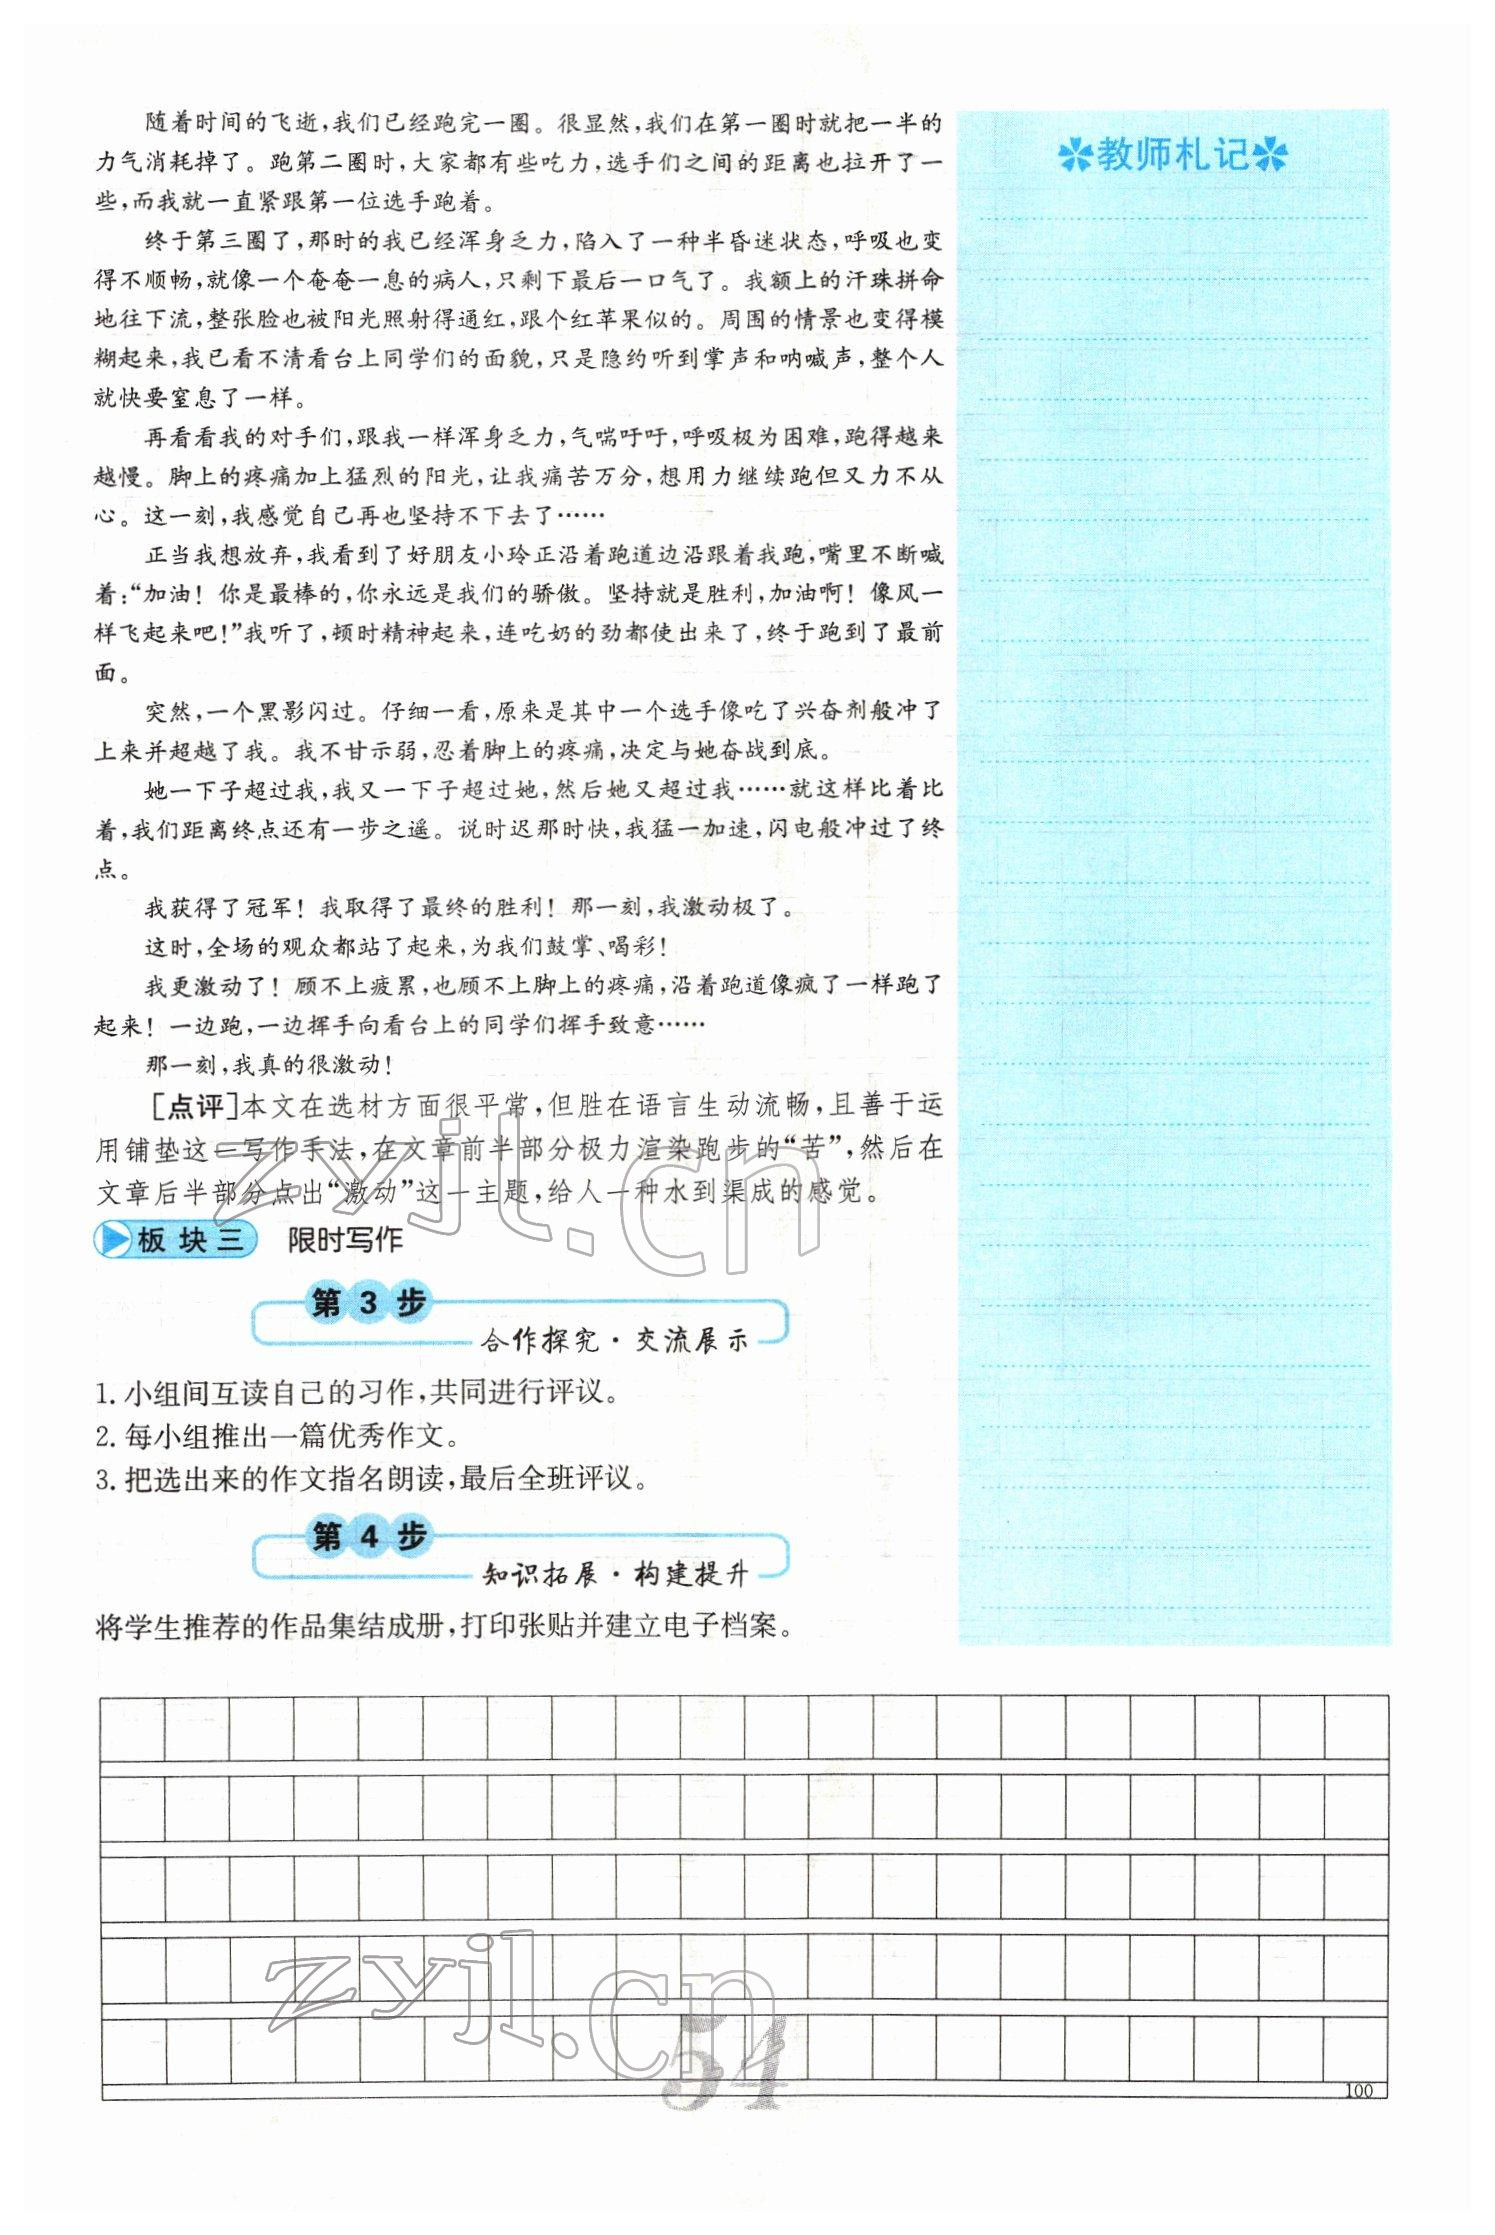 随着时间的飞逝,我们已经跑完一圈。很显然,我们在第一圈时就把一半的
力气消耗掉了。跑第二圈时,大家都有些吃力,选手们之间的距离也拉开了一
些,而我就一直紧跟第一位选手跑着。
终于第三圈了,那时的我已经浑身乏力,陷入了一种半昏迷状态,呼吸也变
得不顺畅,就像一个奄奄一息的病人,只剩下最后一口气了。我额上的汗珠拼命
地往下流,整张脸也被阳光照射得通红,跟个红苹果似的。周围的情景也变得模
糊起来,我已看不清看台上同学们的面貌,只是隐约听到掌声和呐喊声,整个人
就快要窒息了一样。
再看看我的对手们,跟我一样浑身乏力,气喘吁吁,呼吸极为困难,跑得越来
越慢。脚上的疼痛加上猛烈的阳光,让我痛苦万分,想用力继续跑但又力不从
心。这一刻,我感觉自己再也坚持不下去了……
正当我想放弃,我看到了好朋友小玲正沿着跑道边沿跟着我跑,嘴里不断喊
着:“加油!你是最棒的,你永远是我们的骄傲。坚持就是胜利,加油啊!像风一
样飞起来吧!”我听了,顿时精神起来,连吃奶的劲都使出来了,终于跑到了最前
面。
突然,一个黑影闪过。仔细一看,原来是其中一个选手像吃了兴奋剂般冲了
上来并超越了我。我不甘示弱,忍着脚上的疼痛,决定与她奋战到底。
她一下子超过我,我又一下子超过她,然后她又超过我……就这样比着比
着,我们距离终点还有一步之遥。说时迟那时快,我猛一加速,闪电般冲过了终
点。
我获得了冠军!我取得了最终的胜利!那一刻,我激动极了。
这时,全场的观众都站了起来,为我们鼓掌、喝彩!
我更激动了!顾不上疲累,也顾不上脚上的疼痛,沿着跑道像疯了一样跑了
起来!一边跑,一边挥手向看台上的同学们挥手致意……
那一刻,我真的很激动!
[点评]本文在选材方面很平常,但胜在语言生动流畅,且善于运
用铺垫这一写作手法,在文章前半部分极力渲染跑步的“苦”,然后在
文章后半部分点出“激动”这一主题,给人一种水到渠成的感觉。
板块三 限时写作
第3步
合作探究·交流展示
1. 小组间互读自己的习作,共同进行评议。
2. 每小组推出一篇优秀作文。
3. 把选出来的作文指名朗读,最后全班评议。
第4步
知识拓展·构建提升
将学生推荐的作品集结成册,打印张贴并建立电子档案。
教师札记
100
54
zyjl.cn
zyjl.cn